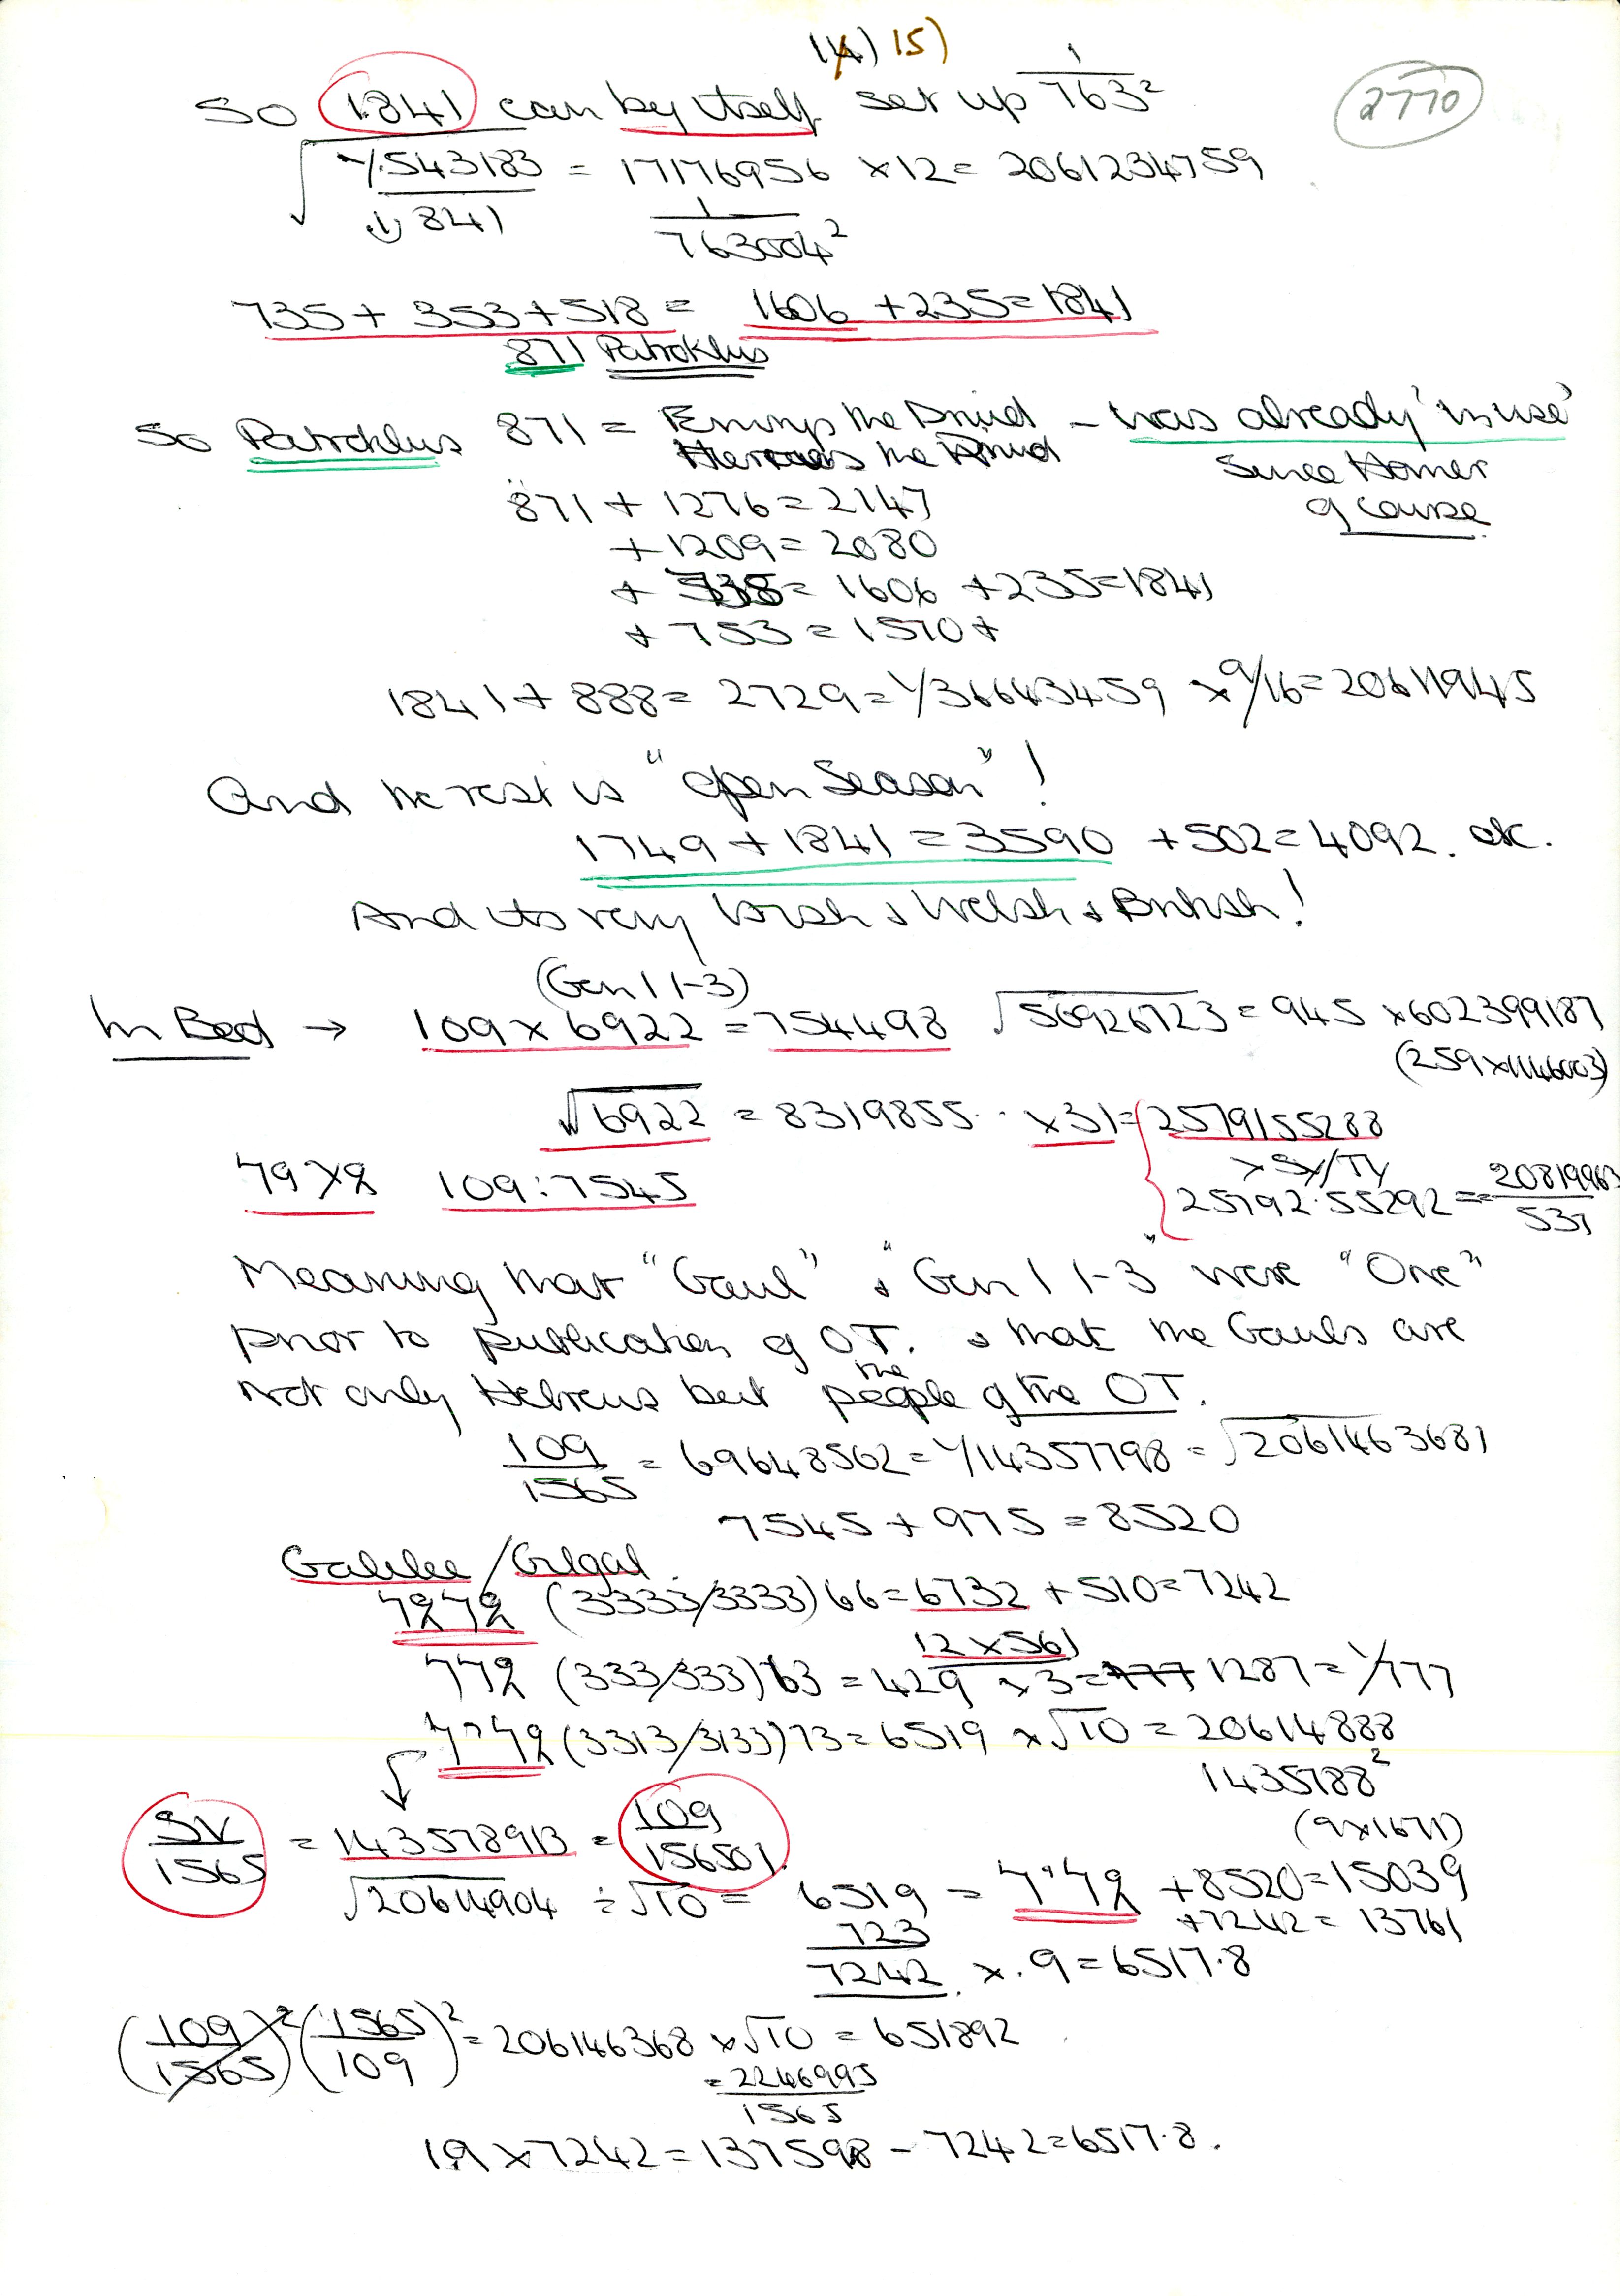 14) 15)
2770
So 1841 can by itself set up 1/763²
√1/.543183 = 17176956 × 12 = 2061234759
1)841 1/763004²
735 + 353 + 518 = 1606 + 235 = 1841
871 Patroklus
So Patroklus 871 = the Druid – was already 'in use'
the Druid since Homer
871 + 1276 = 2147 of course
+ 1209 = 2080
+ 735 = 1606 + 235 = 1841
+ 753 = 1570 +
1841 + 888 = 2729 = 1/36643459 × 9/16 = 20611945
And the rest is "open season"!
1749 + 1841 = 3590 + 502 = 4092. etc.
And its very Irish & Welsh & British!
(Gen 1 1-3)
In Bed → 109 × 6922 = 754498 √56926723 = 945 × 602399187
(259 × 1146003)
√6922 = 8319855.. × 31 = 2579155288
× SY/TY
79 ሃ 109:7545 25792.55292 = 20819963/537
Meaning that "Gaul" & "Gen 1 1-3" were "One"
prior to publication of OT. & that the Gauls are
not only Hebrews but the people of the OT.
109/1565 = 69648562 = 1/14357798 = √2061463681
7545 + 975 = 8520
Galilee / Gilgal
(3333/3333) 66 = 6732 + 510 = 7242
12 × 561
(333/333) 63 = 429 × 3 = 777 1287 = 1/777
(3313/3133) 73 = 6519 × √10 = 20614888
1435788²
(9 × 1671)
SY/1565 = 143578913 = 109/156501.
√20614904 ÷ √10 = 6519 = + 8520 = 15039
723 + 7242 = 13761
7242 × .9 = 6517.8
(109/1565)² (1565/109)² = 206146368 × √10 = 651892
= 2246995/1565
1.9 × 7242 = 137598 – 7242 = 6517.8.